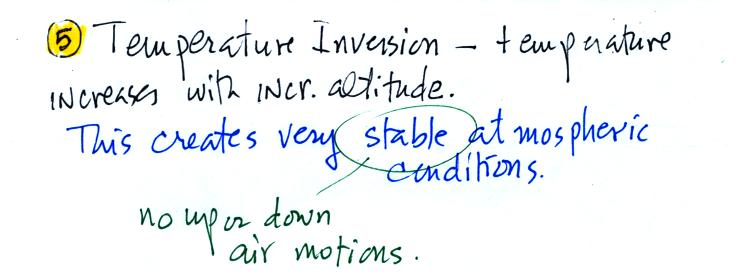 5 Temperature Inversion – temperature
increases with incr. altitude.
This creates very stable atmospheric
conditions.
no up or down
air motions.